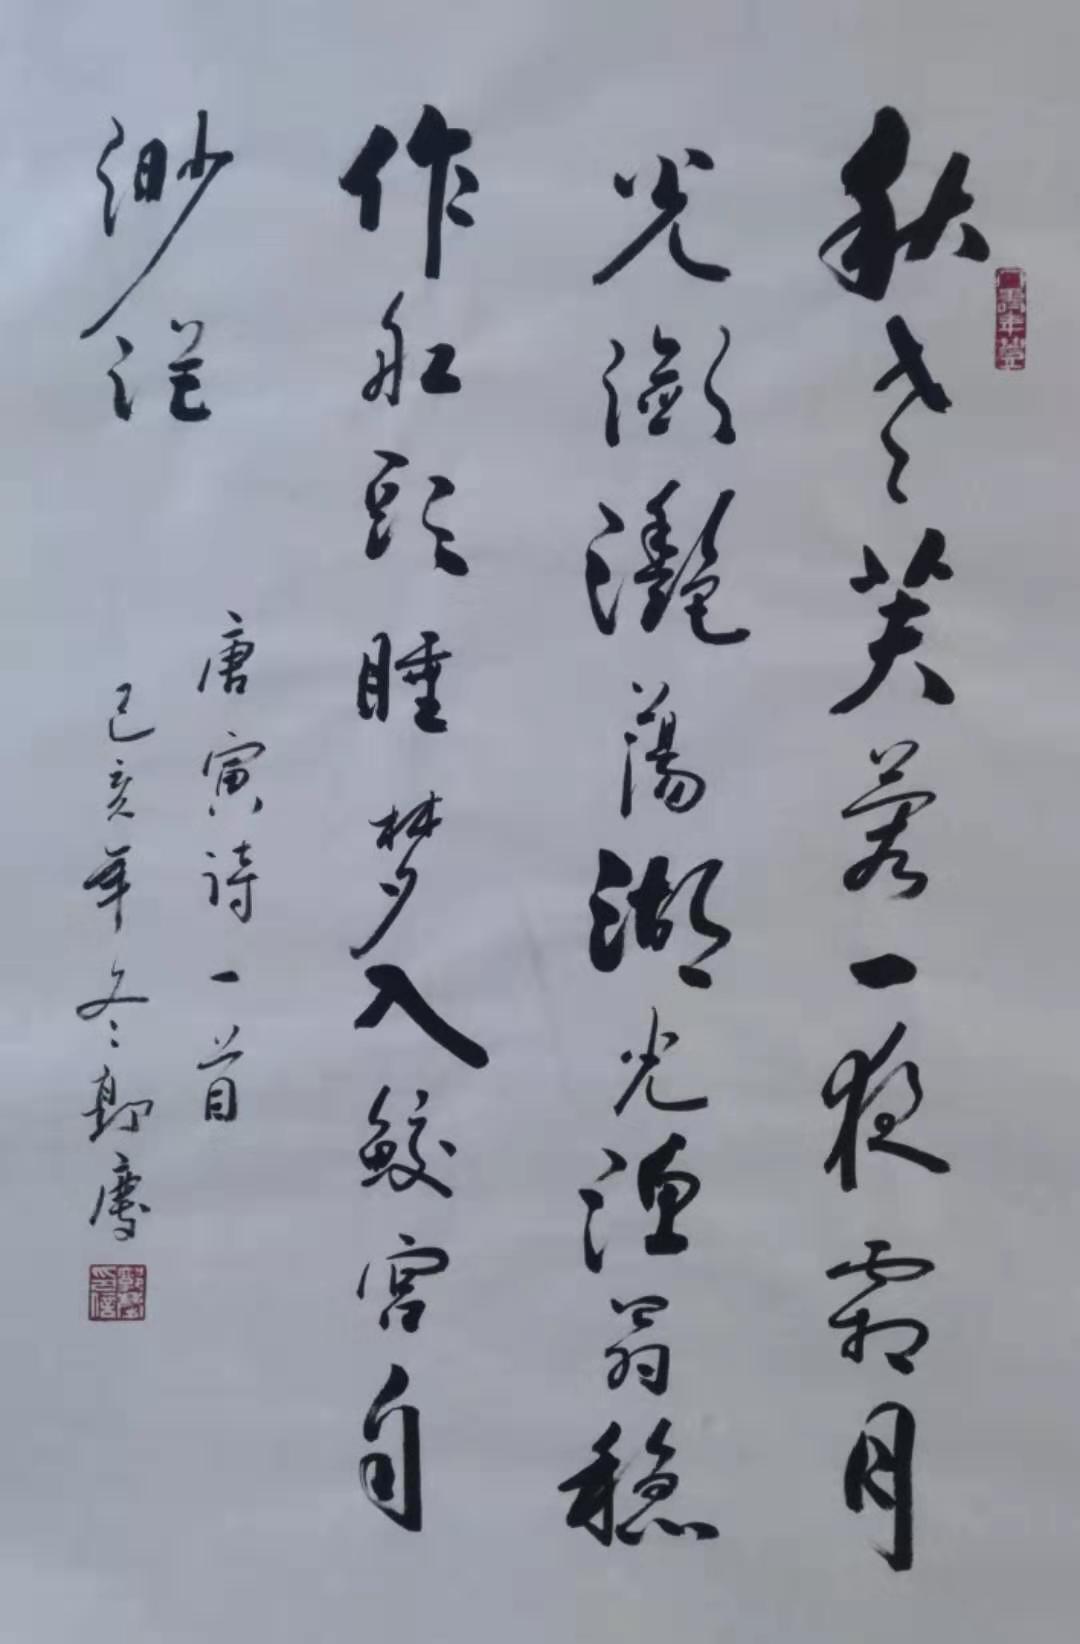 秋老芙蓉一夜霜月
光潋灩蕩湖光渔翁稳
作船頭睡梦入鲛宫自
渺茫
唐寅诗一首
己亥年冬郭慶